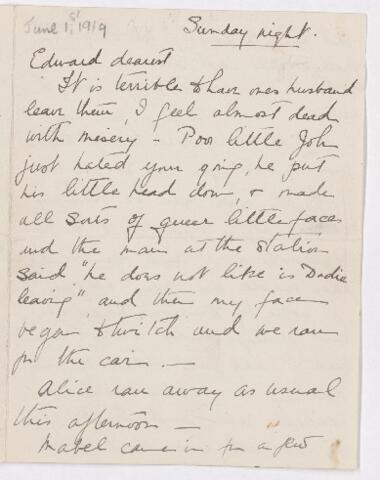 June 1st, 1919
Sunday night.
Edward dearest
It is terrible to have ones husband
leave them, I feel almost dead
with misery - Poor little John
just hated your going, he put
his little head down, & made
all sorts of queer little faces
and the man at the station
said "he does not like is Dadie
leaving" and then my face
began to twitch and we ran
for the car. -
Alice ran away as usual
this afternoon -
Mabel came in for a few